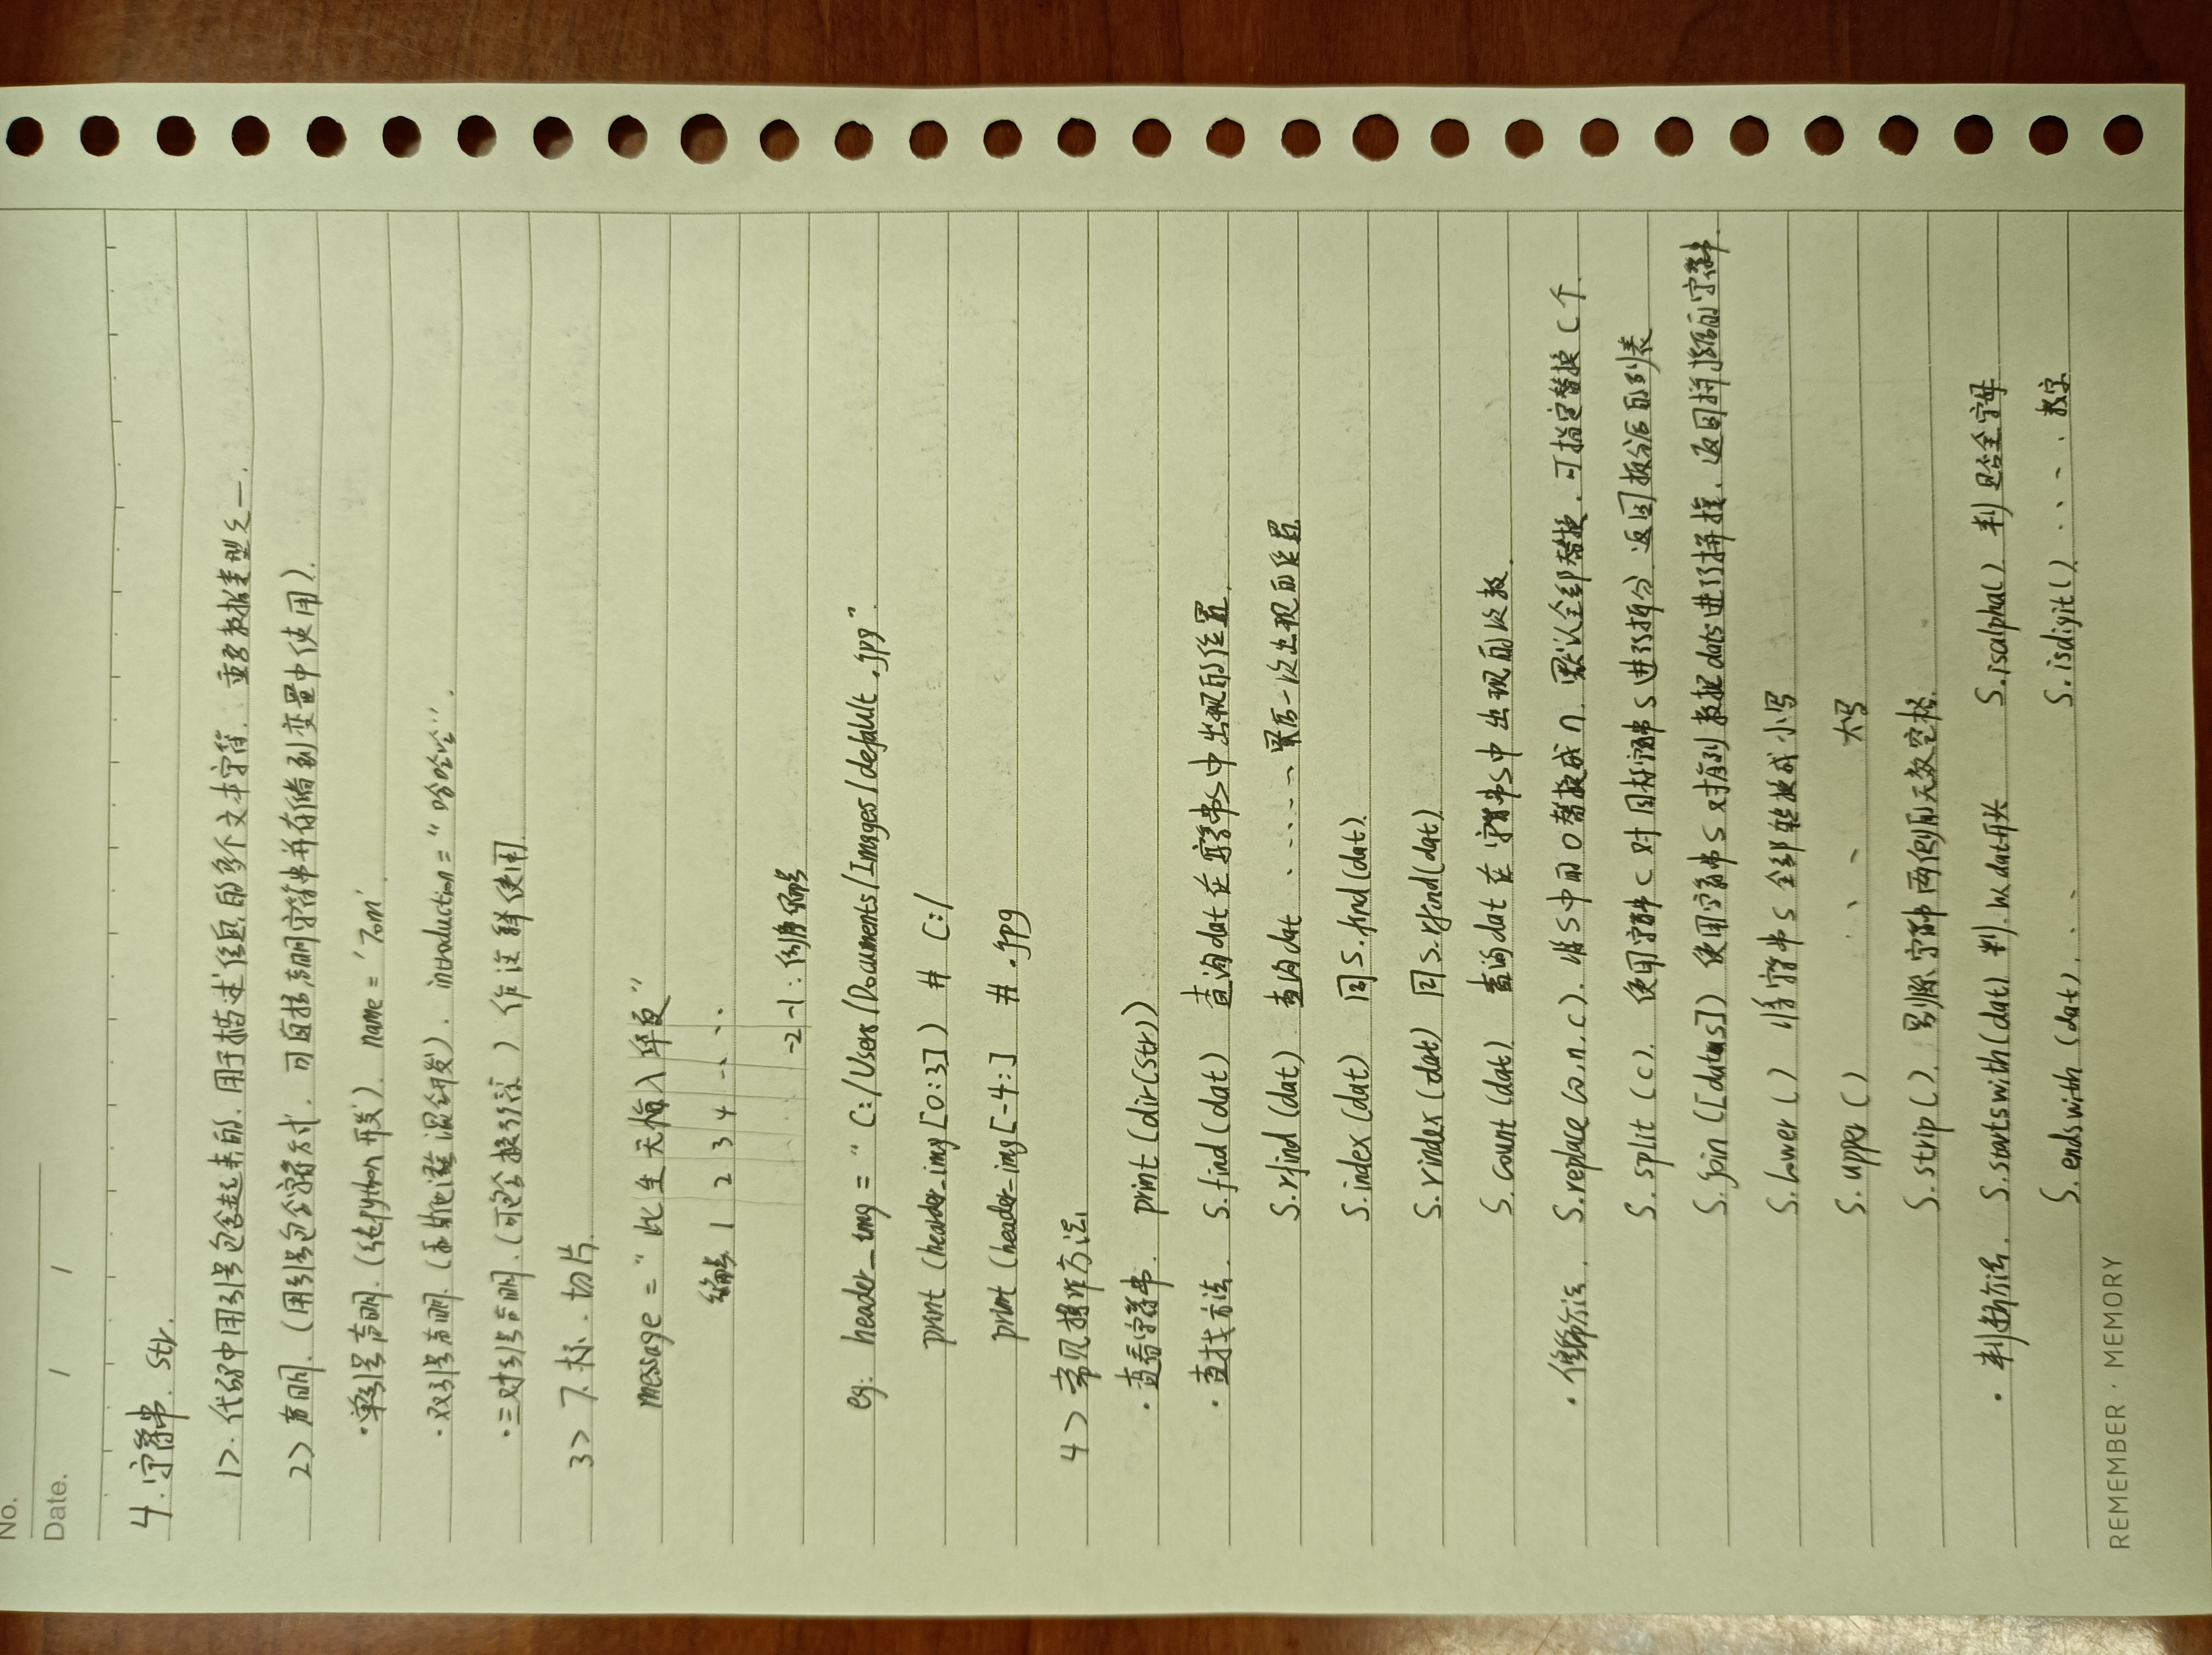 No.
Date. / /
4. 字符串. str.
1>. 代码中用引号包含起来的. 用于描述信息的多个文本字符. 重要数据类型之一.
2> 声明. (用引号包含字符方式. 可直接声明字符串并存储到变量中使用).
·单引号声明. (纯python开发). name = 'Tom'.
·双引号声明. (和其他语言混合开发). introduction = "哈哈哈".
·三对引号声明. (可包含换行符) 作注释使用.
3> 下标. 切片.
message = "此生无悔入华夏"
编号 1 2 3 4 ·· ··
-2 -1 : 倒序编号
eg: header_img = "C:/Users/Documents/Images/default.jpg".
print (header_img[0:3]) # C:/
print (header_img[-4:] # .jpg
4> 常见操作方法.
· 查看字符串. print (dir(str))
· 查找方法. S.find(dat) 查询dat在字符串S中出现的位置.
S.rfind (dat) 查询dat ······ 最后一次出现的位置
S.index (dat) 同S.find(dat).
S.rindex (dat) 同S.rfind(dat).
S.count (dat). 查询dat在字符串S中出现的次数.
· 修饰方法. S.replace (o,n,c). 将S中的o替换成n. 默认全部替换. 可指定替换c个.
S.split (c). 使用字符串c对目标字符串S进行拆分. 返回拆分后的列表
S.join ([datas]) 使用字符串S对序列数据dats进行拼接. 返回拼接后的字符串.
S.lower () 将字符串S全部转换成小写
S.upper () · · · 大写
S.strip (). 剔除字符串两侧的无效空格.
· 判断方法. S.startswith(dat) 判. 以dat开头 S.isalpha(). 判是否全字母
S.endswith (dat). · · S.isdigit(). · · · · 数字
REMEMBER · MEMORY